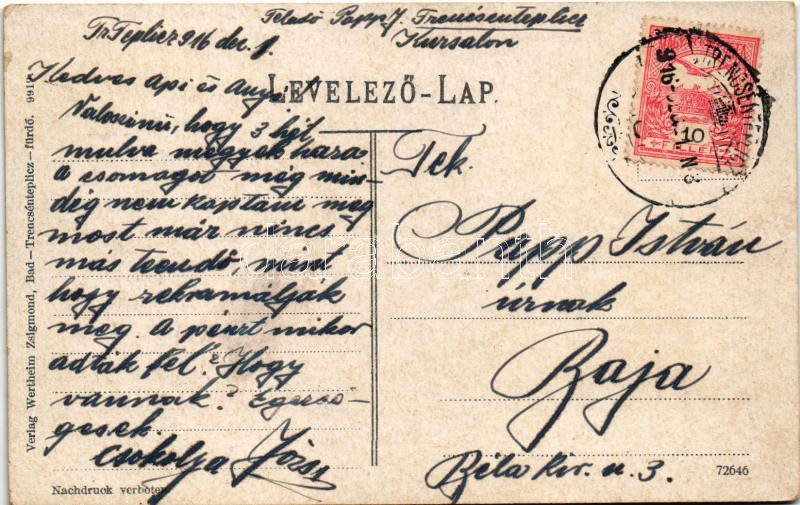 Feladó Papp J. Trencsénteplicz
Kursalon
Tr. Teplicz 916 dec. 1.
LEVELEZŐ-LAP.
Kedves Api és Anyu!
Valoszinü, hogy 3 hét
mulva megyek haza
a csomagot még min-
dég nem kaptam meg
most már nincs
más teendő, mint
hogy reklamálják
meg. A pénzt mikor
adták fel? Hogy
vannak? Egészsé-
gesek.
Csokolja Józsi
Tek.
Papp István
úrnak
Baja
Béla kir. u. 3.
10
FILLÉR
Verlag Wertheim Zsigmond, Bad-Trencsénteplicz-fürdő.
Nachdruck verboten
72646